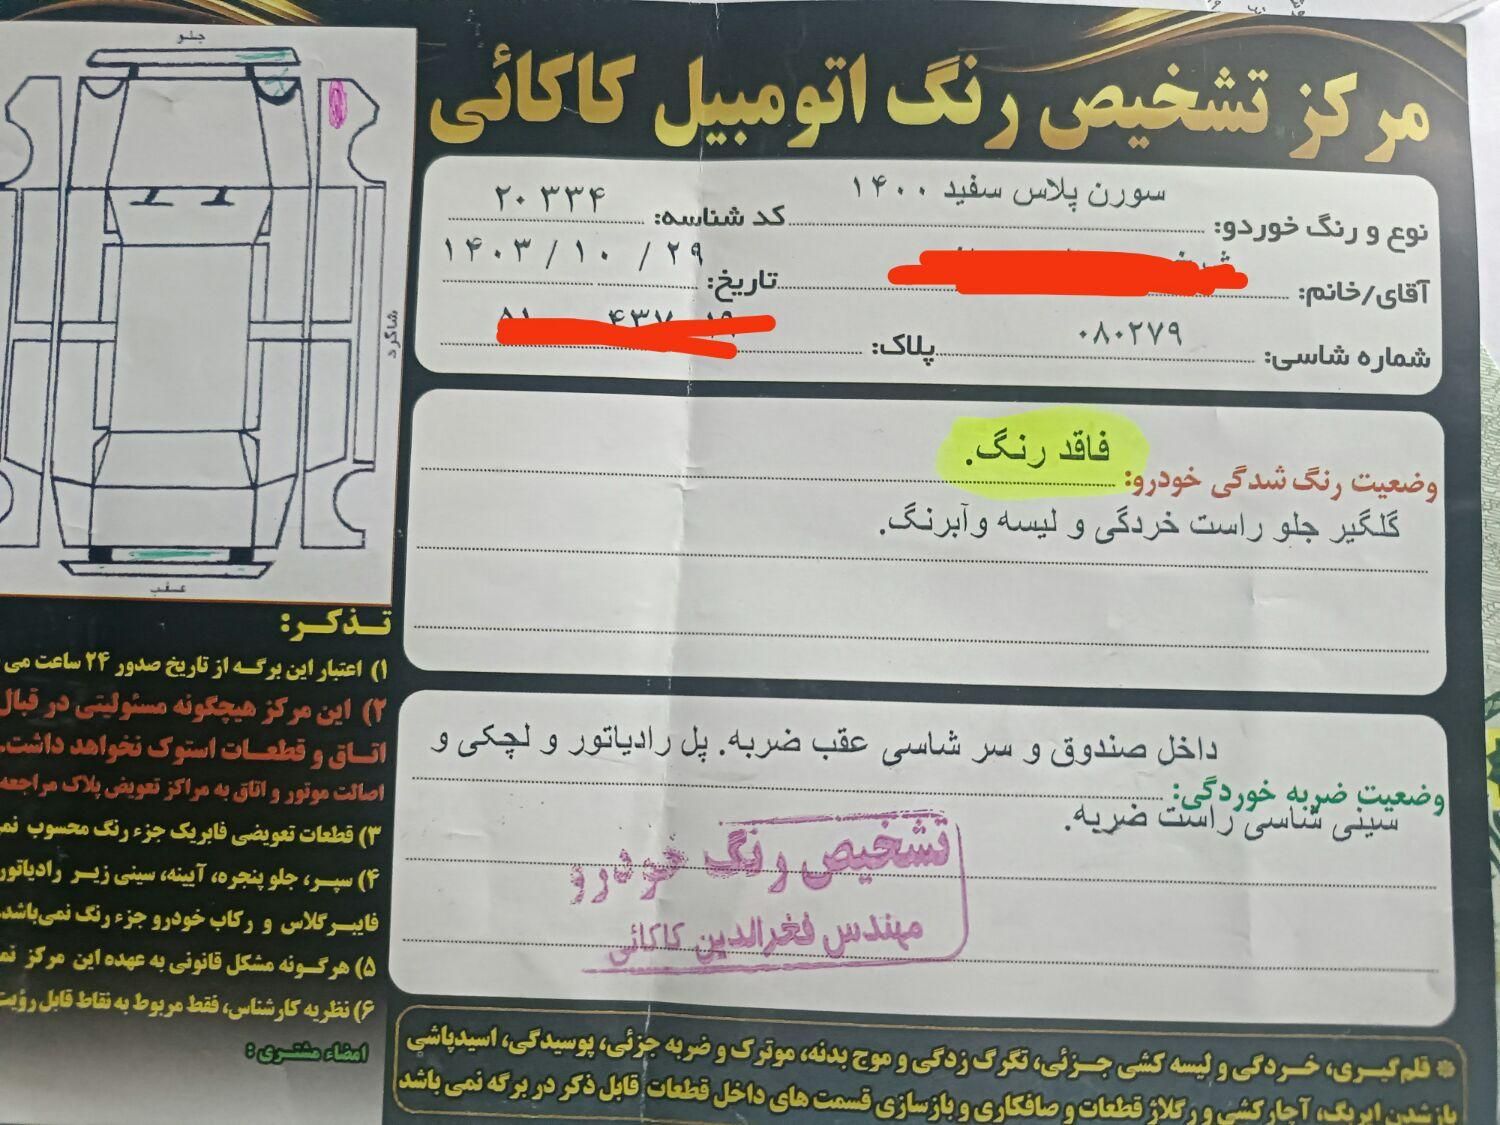 جلو
شاگرد
عقب
مرکز تشخیص رنگ اتومبیل کاکائی
نوع و رنگ خوردو: سورن پلاس سفید ۱۴۰۰
کد شناسه: ۲۰۳۳۴
آقای/خانم:
تاریخ: ۱۴۰۳/۱۰/۲۹
شماره شاسی: ۰۸۰۲۷۹
پلاک:
وضعیت رنگ شدگی خودرو: فاقد رنگ.
گلگیر جلو راست خردگی و لیسه وآبرنگ.
وضعیت ضربه خوردگی: داخل صندوق و سر شاسی عقب ضربه. پل رادیاتور و لچکی و
سینی شاسی راست ضربه.
تشخیص رنگ خودرو
مهندس فخرالدین کاکائی
تذکر:
۱) اعتبار این برگه از تاریخ صدور ۲۴ ساعت می
۲) این مرکز هیچگونه مسئولیتی در قبال
اتاق و قطعات استوک نخواهد داشت.
اصالت موتور و اتاق به مراکز تعویض پلاک مراجعه
۳) قطعات تعویضی فابریک جزء رنگ محسوب
۴) سپر، جلو پنجره، آیینه، سینی زیر رادیاتور
فایبرگلاس و رکاب خودرو جزء رنگ نمی‌باشد.
۵) هرگونه مشکل قانونی به عهده این مرکز
۶) نظریه کارشناس، فقط مربوط به نقاط قابل رؤیت
امضاء مشتری:
* قلم‌گیری، خردگی و لیسه کشی جزئی، تگرگ زدگی و موج بدنه، موترک و ضربه جزئی، پوسیدگی، اسیدپاشی
بازشدن ایربگ، آچارکشی و رگلاژ قطعات و صافکاری و بازسازی قسمت های داخل قطعات قابل ذکر در برگه نمی باشد